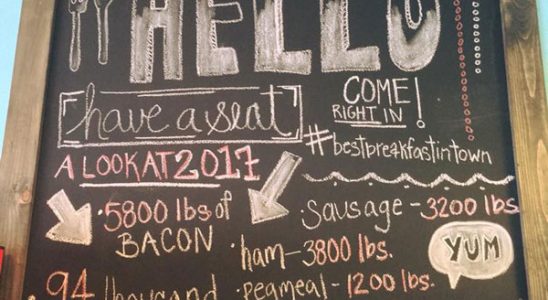 HELLO
have a seat
COME
RIGHT IN!
#bestbreakfastintown
A LOOK AT 2017
•5800 lbs of
BACON
•Sausage-3200 lbs.
•ham-3800 lbs.
YUM
•94 thousand
•peameal-1200 lbs.